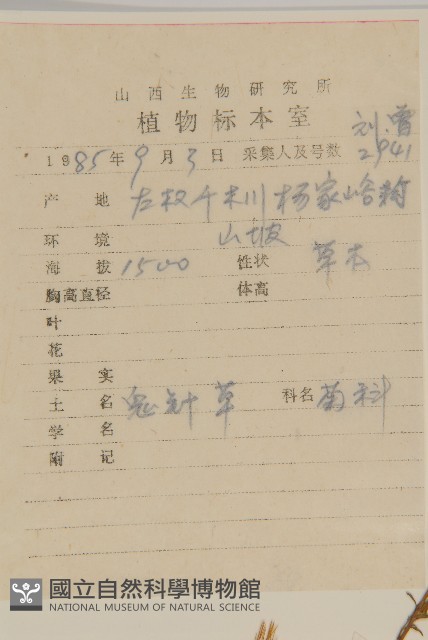 山西生物研究所
植物标本室
刘.曾
1985年9月3日 采集人及号数 2941
产地 左权千木川杨家峪
环境 山坡
海拔 1500 性状 草本
胸高直径 体高
叶
花
果实
土名 鬼针草 科名 菊科
学名
附记
國立自然科學博物館
NATIONAL MUSEUM OF NATURAL SCIENCE